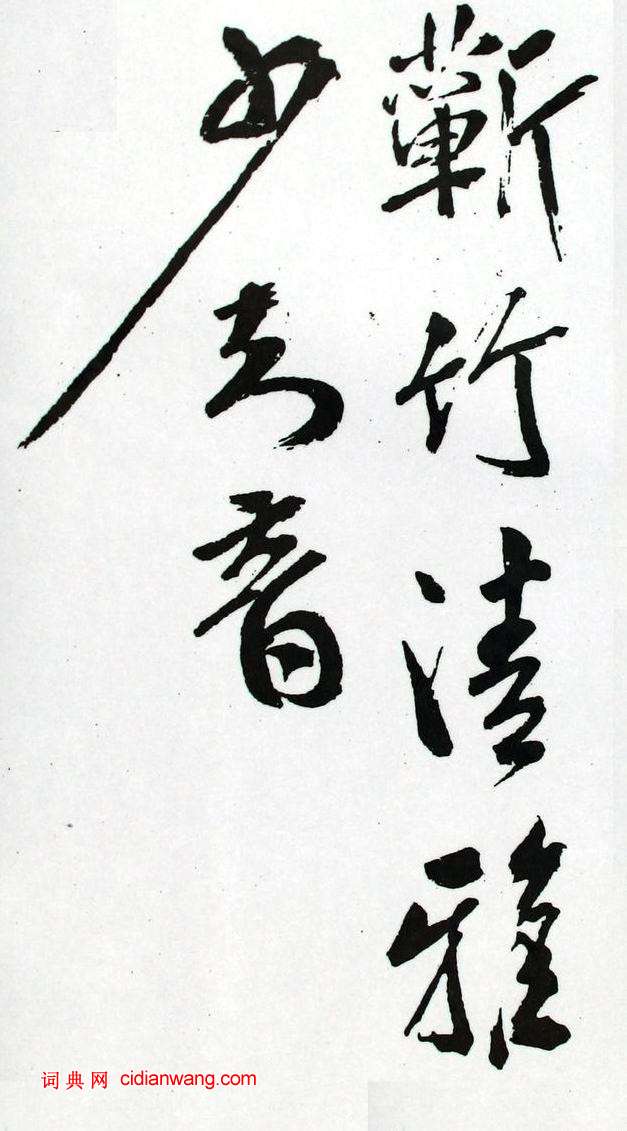 蘄竹清雅
少知音
词典网 cidianwang.com